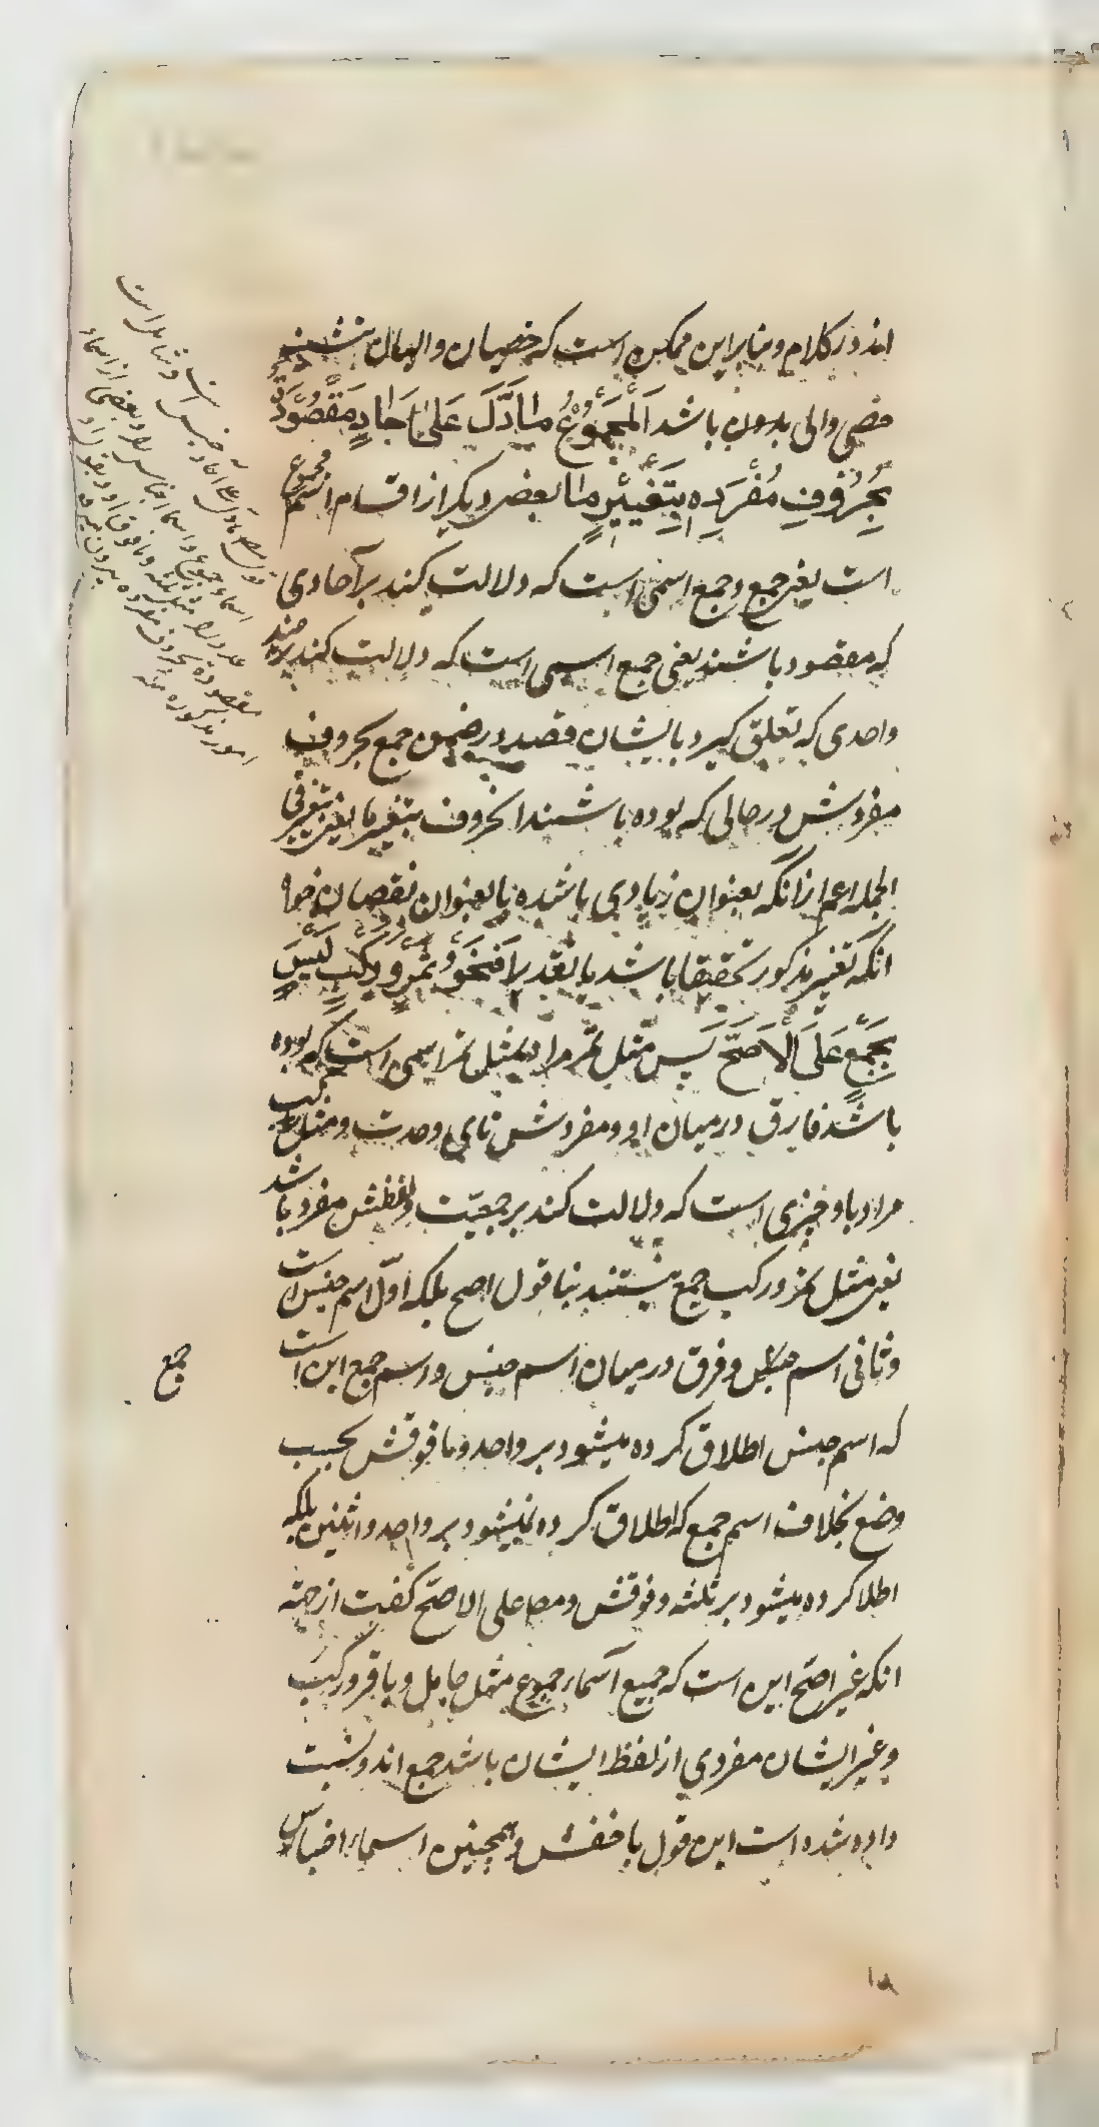 اند در کلام و بنابراین ممکن است که خصیان و الیان تثنیه
خصی و الی بدون باشد اَلْمَجْمُوْعُ مَا دَلَّ عَلیٰ اٰحَادٍ مَقْصُوْدَةٍ
بِحُرُوْفِ مُفْرَدِهِ بِتَغْیِیْرٍ مَا بعضی دیکر از اقسام اسم مجموع
است یعنی جمع و جمع اسمی است که دلالت کند بر آحادی
که مقصود باشند یعنی جمع اسمی است که دلالت کند بر چند
واحدی که تعلق کیرد بایشان قصد در ضمن جمع بحروف
مفردش در حالی که بوده باشند انحروف بتغییر ما یعنی بتغییر فی
الجمله اعم ازانکه بعنوان زیادی باشد یا بعنوان نقصان خواه
انکه تغییر مذکور تحقیقا باشد یا تقدیرا فَنَحْوُ تَمْرٍ وَ رَکْبٍ لَیْسَ
بِجَمْعٍ عَلَی الْاَصَحِّ پس مثل تمر مراد بمثل تمر اسمی است که بوده
باشد فارق درمیان او و مفردش تای وحدت و مثل رکب
مراد باو چیزی است که دلالت کند بر جمعیّت و لفظش مفرد باشد
یعنی مثل تمر و رکب جمع نیستند بنا قول اصح بلکه اوّل اسم جنس است
و ثانی اسم جمع و فرق درمیان اسم جنس و اسم جمع این است
که اسم جنس اطلاق کرده میشود بر واحد و ما فوقش بحسب
وضع بخلاف اسم جمع که اطلاق کرده نمیشود بر واحد و اثنین بلکه
اطلا کرده میشود بر ثلثه و فوقش و مص علی الاصحّ کفت از جهته
انکه غیر اصحّ این است که جمیع آسماء جموع مثل جامل و باقر و رکب
و غیر ایشان مفردی از لفظ ایشان باشد جمع اند و نسبت
داده شده است این قول باخفش و همچنین اسماء اجناس
جمع
۱۵